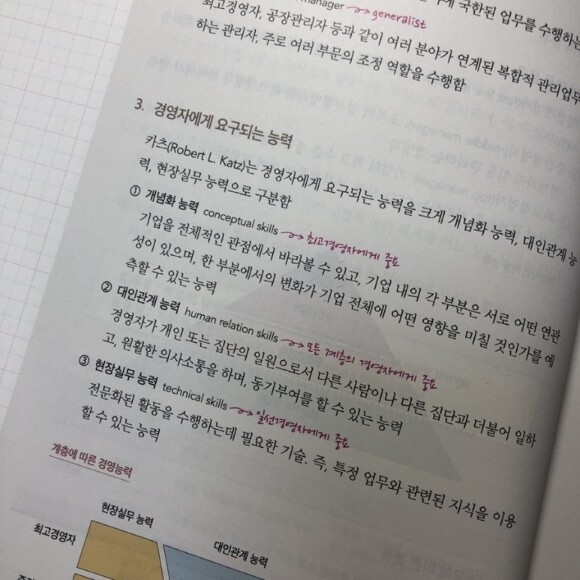 manager → generalist 국한된 업무를 수행하는
최고경영자, 공장관리자 등과 같이 여러 분야가 연계된 복합적 관리업무
하는 관리자, 주로 여러 부문의 조정 역할을 수행함
3. 경영자에게 요구되는 능력
카츠(Robert L. Katz)는 경영자에게 요구되는 능력을 크게 개념화 능력, 대인관계 능
력, 현장실무 능력으로 구분함
① 개념화 능력 conceptual skills → 최고경영자에게 중요
기업을 전체적인 관점에서 바라볼 수 있고, 기업 내의 각 부분은 서로 어떤 연관
성이 있으며, 한 부분에서의 변화가 기업 전체에 어떤 영향을 미칠 것인가를 예
측할 수 있는 능력
② 대인관계 능력 human relation skills → 모든 계층의 경영자에게 중요
경영자가 개인 또는 집단의 일원으로서 다른 사람이나 다른 집단과 더불어 일하
고, 원활한 의사소통을 하며, 동기부여를 할 수 있는 능력
③ 현장실무 능력 technical skills → 일선경영자에게 중요
전문화된 활동을 수행하는데 필요한 기술. 즉, 특정 업무와 관련된 지식을 이용
할 수 있는 능력
계층에 따른 경영능력
현장실무 능력
최고경영자
대인관계 능력